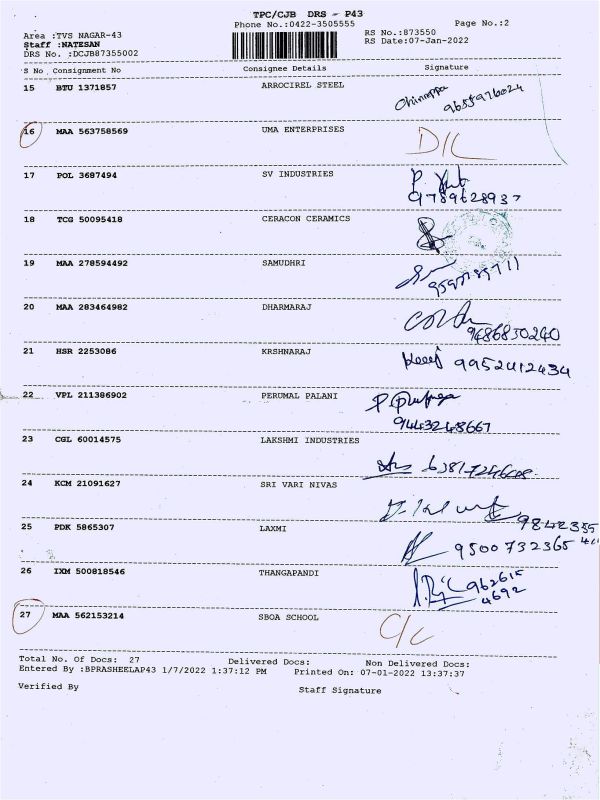 TPC/CJB DRS - P43
Phone No.:0422-3505555 Page No.:2
Area :TVS NAGAR-43 RS No.:873550
Staff :NATESAN RS Date:07-Jan-2022
DRS No. :DCJB87355002
S No Consignment No Consignee Details Signature
15 BTU 1371857 ARROCIREL STEEL
Chinnappa
9655976024
16 MAA 563758569 UMA ENTERPRISES
D/L
17 POL 3687494 SV INDUSTRIES
9789628937
18 TCG 50095418 CERACON CERAMICS
19 MAA 278594492 SAMUDHRI
20 MAA 283464982 DHARMARAJ
9486850240
21 HSR 2253086 KRSHNARAJ
9952412434
22 VPL 211386902 PERUMAL PALANI
9443248667
23 CGL 60014575 LAKSHMI INDUSTRIES
24 KCM 21091627 SRI VARI NIVAS
9842355
25 PDK 5865307 LAXMI
9500732365
26 IXM 500818546 THANGAPANDI
962615
4692
27 MAA 562153214 SBOA SCHOOL
C/C
Total No. Of Docs: 27 Delivered Docs: Non Delivered Docs:
Entered By :BPRASHEELAP43 1/7/2022 1:37:12 PM Printed On: 07-01-2022 13:37:37
Verified By Staff Signature